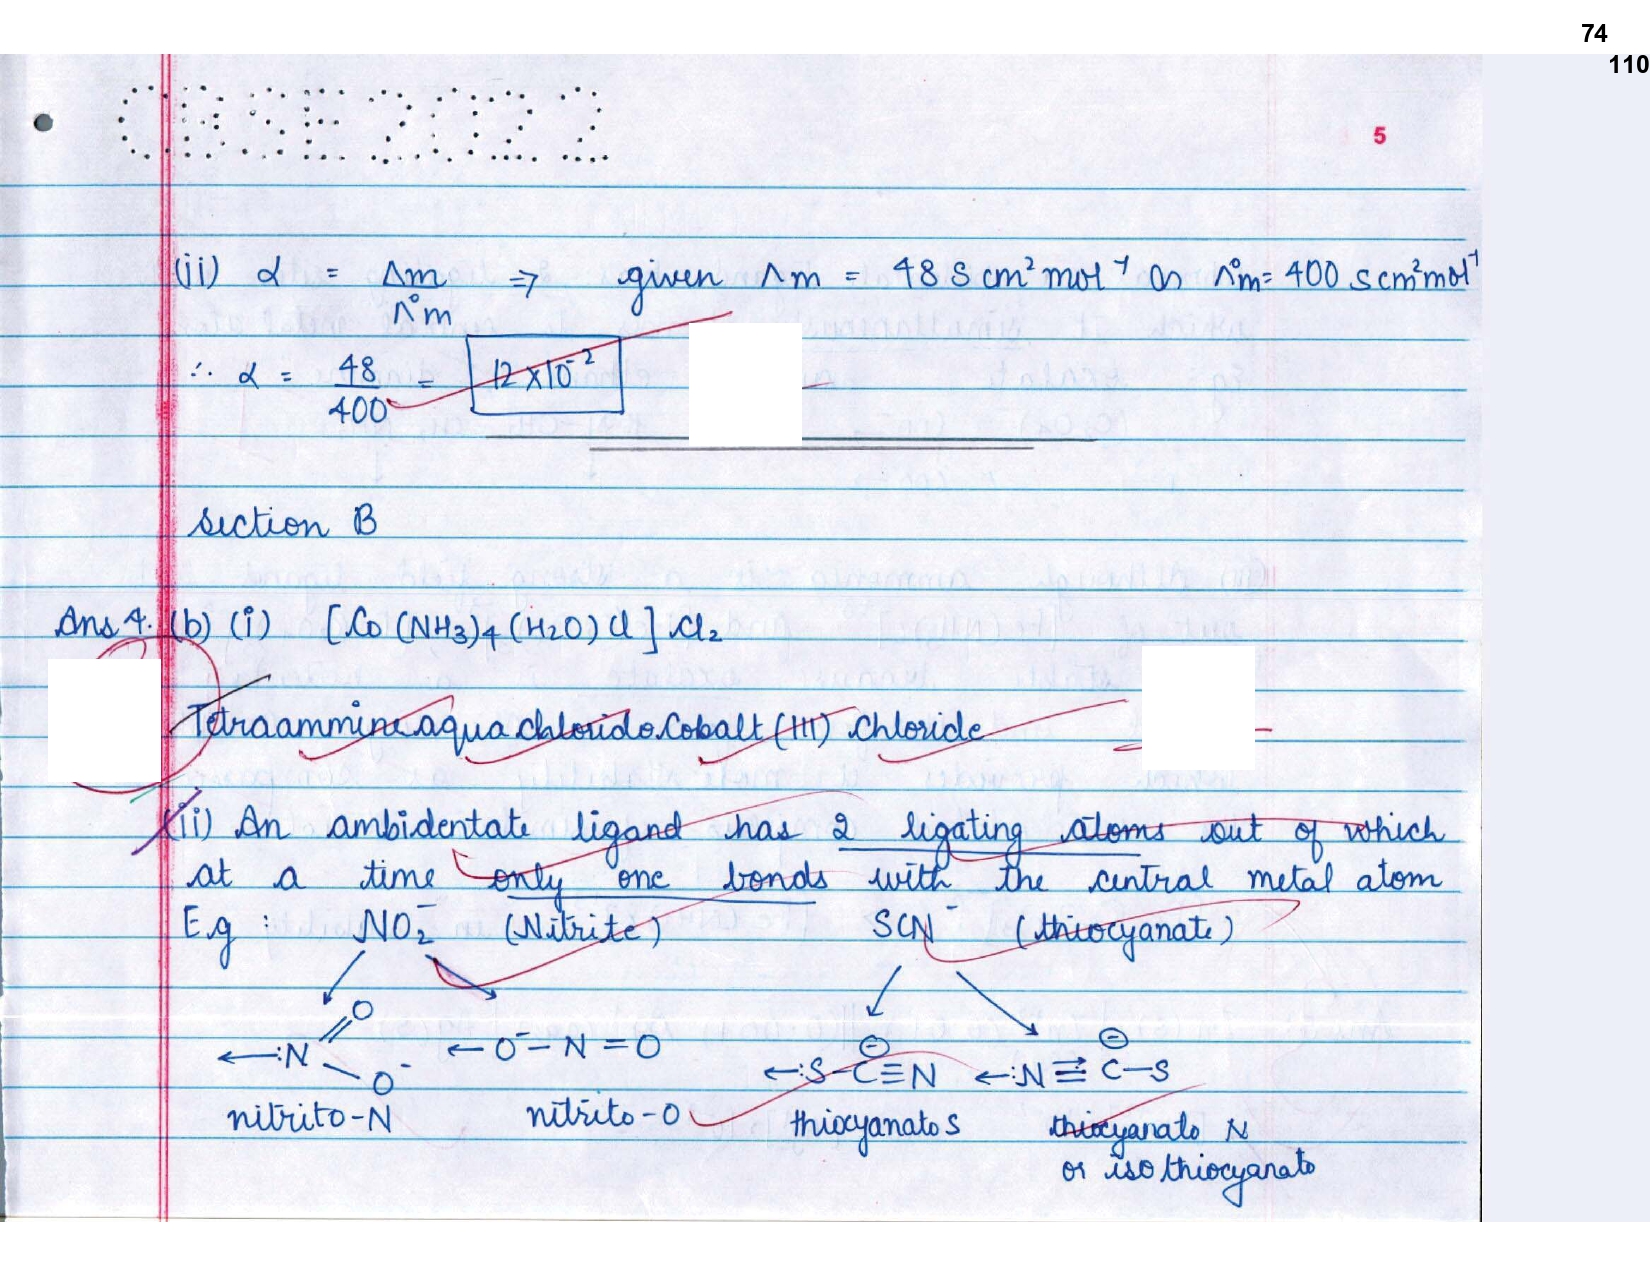 74
110
CBSE 2022
5
(ii) α = Λm / Λ°m ⇒ given Λm = 48 S cm² mol⁻¹ Λ°m = 400 S cm² mol⁻¹
∴ α = 48/400 = 12 × 10⁻²
Section B
Ans 4. (b) (i) [Co (NH3)4 (H2O) Cl] Cl2
Tetraammineaquachlorido Cobalt (III) Chloride
(ii) An ambidentate ligand has 2 ligating atoms out of which
at a time only one bonds with the central metal atom
E.g : NO2⁻ (Nitrite) SCN⁻ (thiocyanate)
←:N =O –O⁻ ← O⁻ – N = O ←:S–C≡N ⊖ ←:N≡C–S ⊖
nitrito-N nitrito-O thiocyanato S thiocyanato N
or isothiocyanato